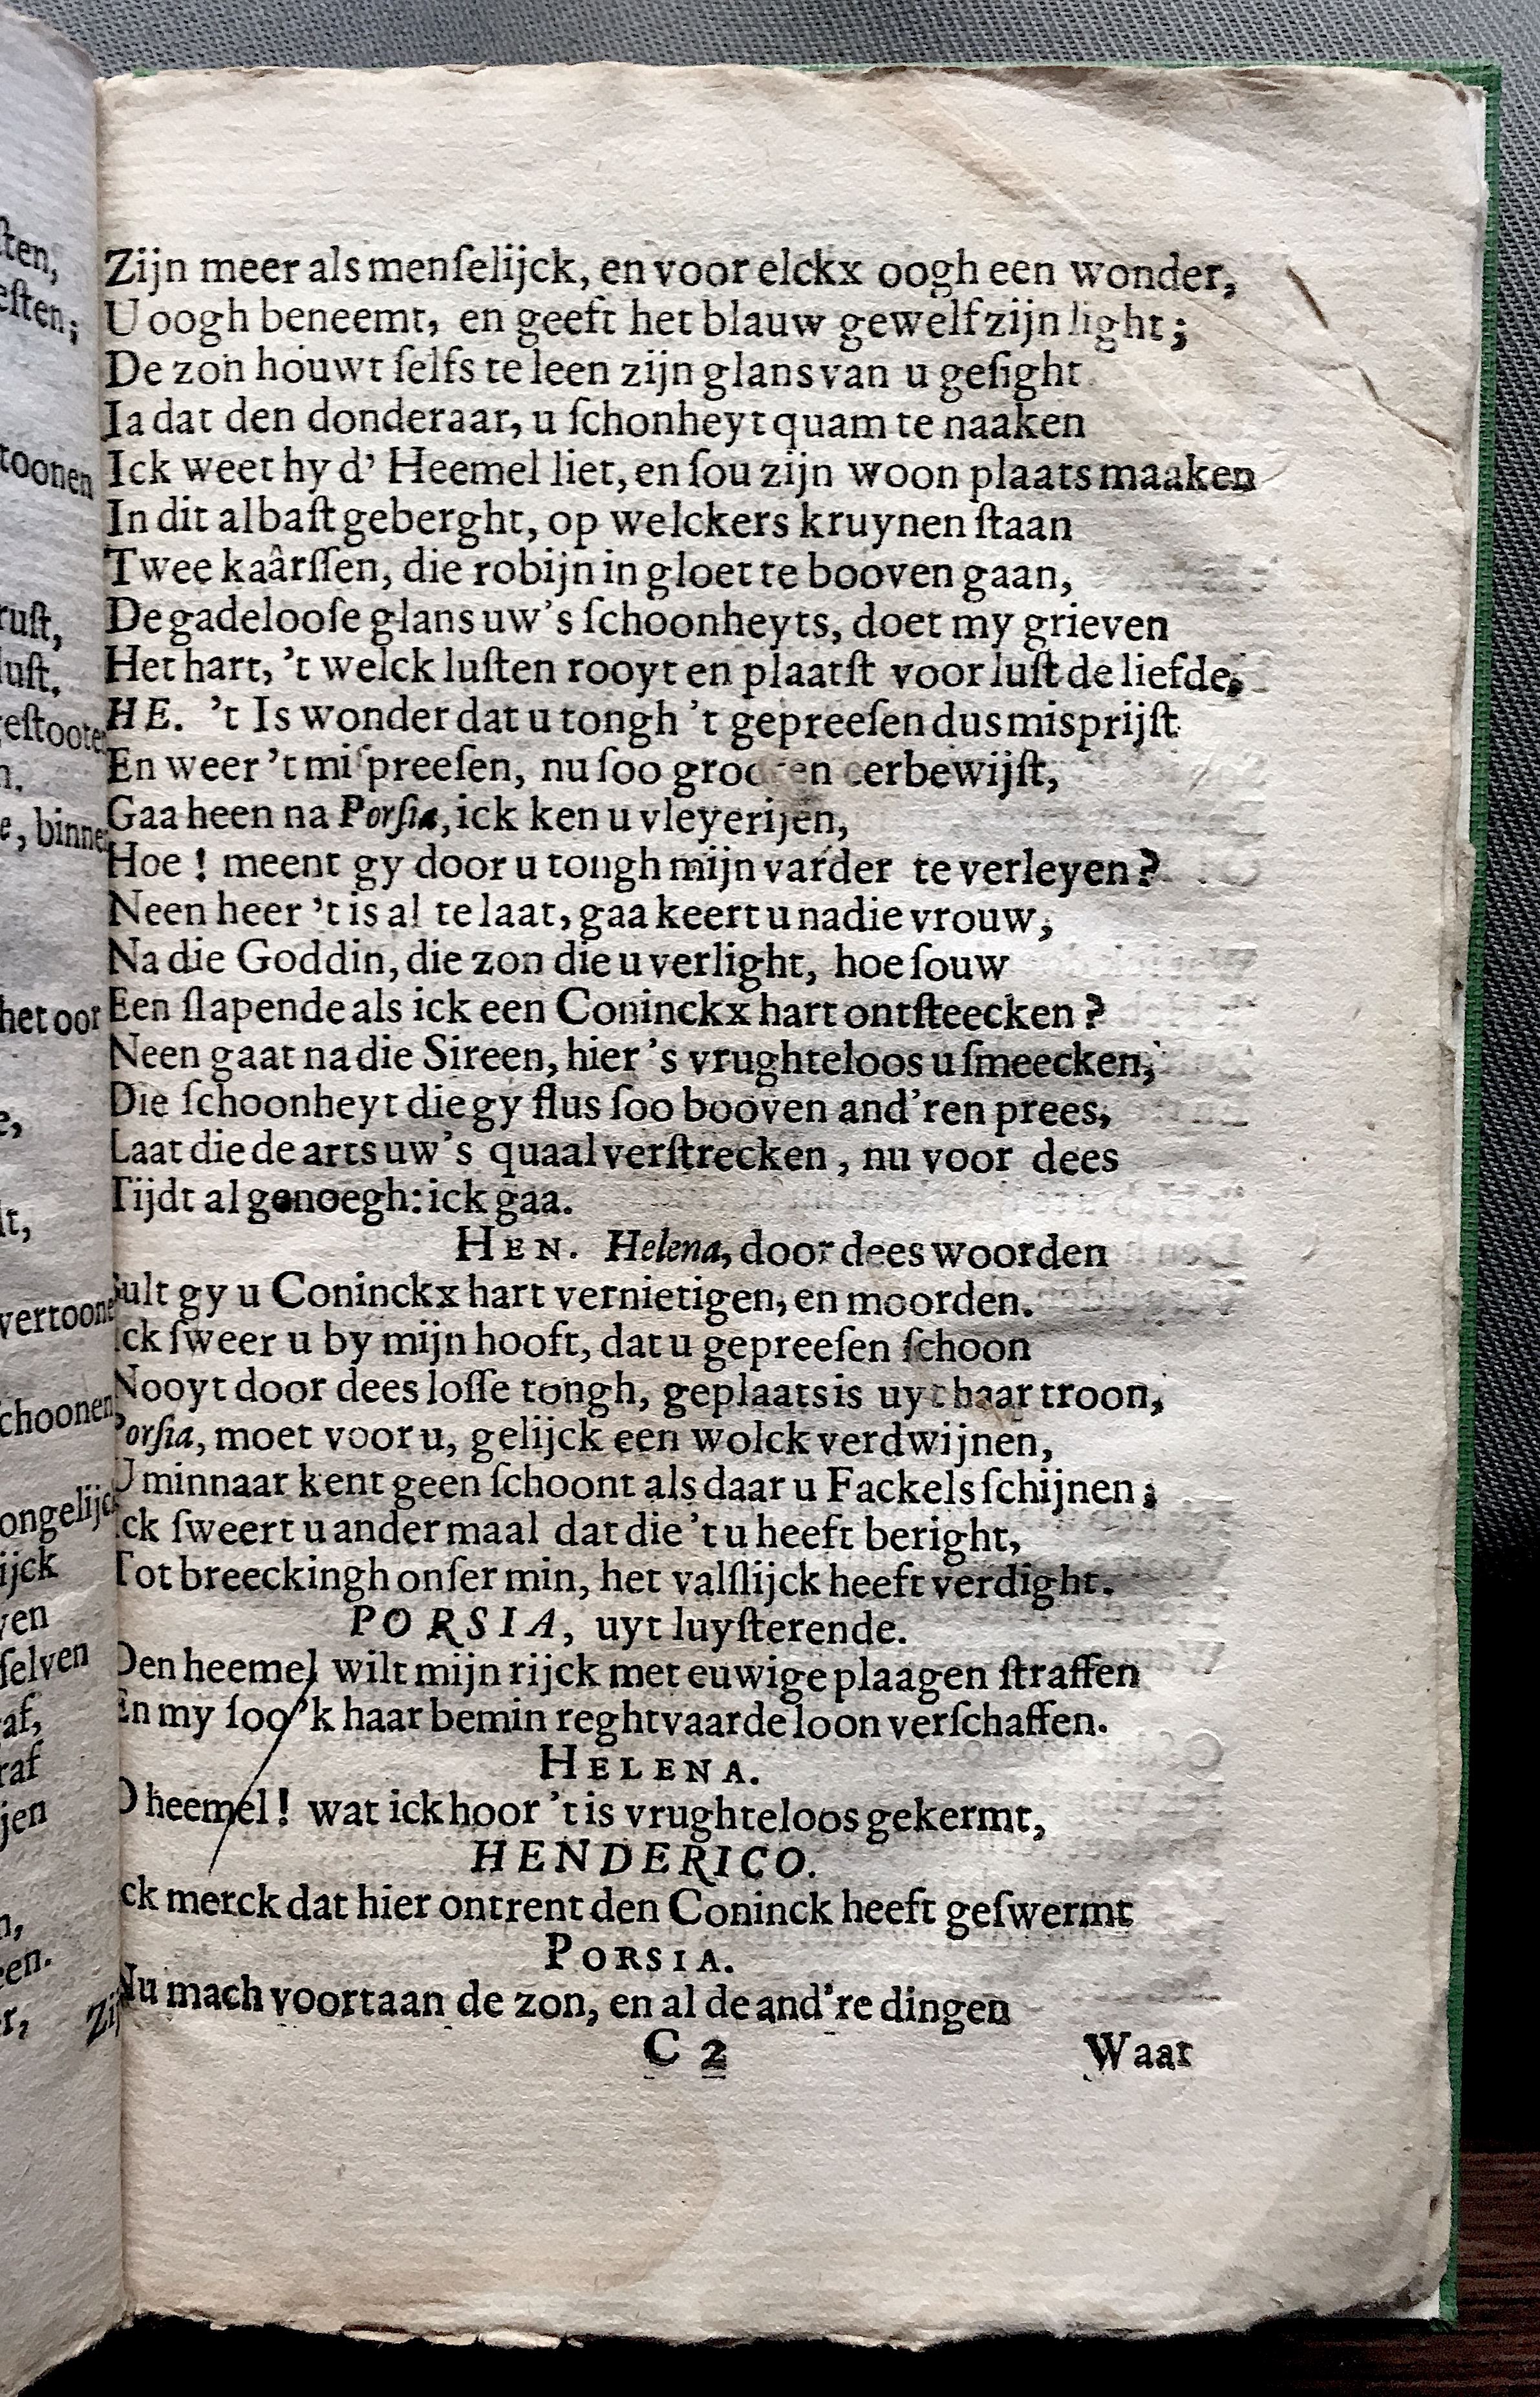 Zijn meer als menſelijck, en voor elckx oogh een wonder,
U oogh beneemt, en geeft het blauw gewelf zijn light;
De zon houwt ſelfs te leen zijn glans van u geſight
Ia dat den donderaar, u ſchonheyt quam te naaken
Ick weet hy d' Heemel liet, en ſou zijn woon plaats maaken
In dit albaſt geberght, op welckers kruynen ſtaan
Twee kaârſſen, die robijn in gloet te booven gaan,
De gadelooſe glans uw's ſchoonheyts, doet my grieven
Het hart, 't welck luſten rooyt en plaatſt voor luſt de liefde,
HE. 't Is wonder dat u tongh 't gepreeſen dus misprijſt
En weer 't miſpreeſen, nu ſoo grooten eerbewijſt,
Gaa heen na Porſia, ick ken u vleyerijen,
Hoe! meent gy door u tongh mijn varder te verleyen?
Neen heer 't is al te laat, gaa keert u na die vrouw,
Na die Goddin, die zon die u verlight, hoe ſouw
Een ſlapende als ick een Coninckx hart ontſteecken?
Neen gaat na die Sireen, hier's vrughteloos u ſmeecken,
Die ſchoonheyt die gy flus ſoo booven and'ren prees,
Laat die de arts uw's quaal verſtrecken, nu voor dees
Tijdt al genoegh: ick gaa.
HEN. Helena, door dees woorden
Sult gy u Coninckx hart vernietigen, en moorden.
Ick ſweer u by mijn hooft, dat u gepreeſen ſchoon
Nooyt door dees loſſe tongh, geplaats is uyt haar troon,
Porſia, moet voor u, gelijck een wolck verdwijnen,
U minnaar kent geen ſchoont als daar u Fackels ſchijnen;
Ick ſweert u andermaal dat die 't u heeft beright,
Tot breeckingh onſer min, het valſlijck heeft verdight.
PORSIA, uyt luyſterende.
Den heemel wilt mijn rijck met euwige plaagen ſtraffen
En my ſoo'k haar bemin reghtvaarde loon verſchaffen.
HELENA.
O heemel! wat ick hoor 't is vrughteloos gekermt,
HENDERICO.
Ick merck dat hier ontrent den Coninck heeft geſwermt
PORSIA.
Nu mach voortaan de zon, en al de and're dingen
C 2 Waar